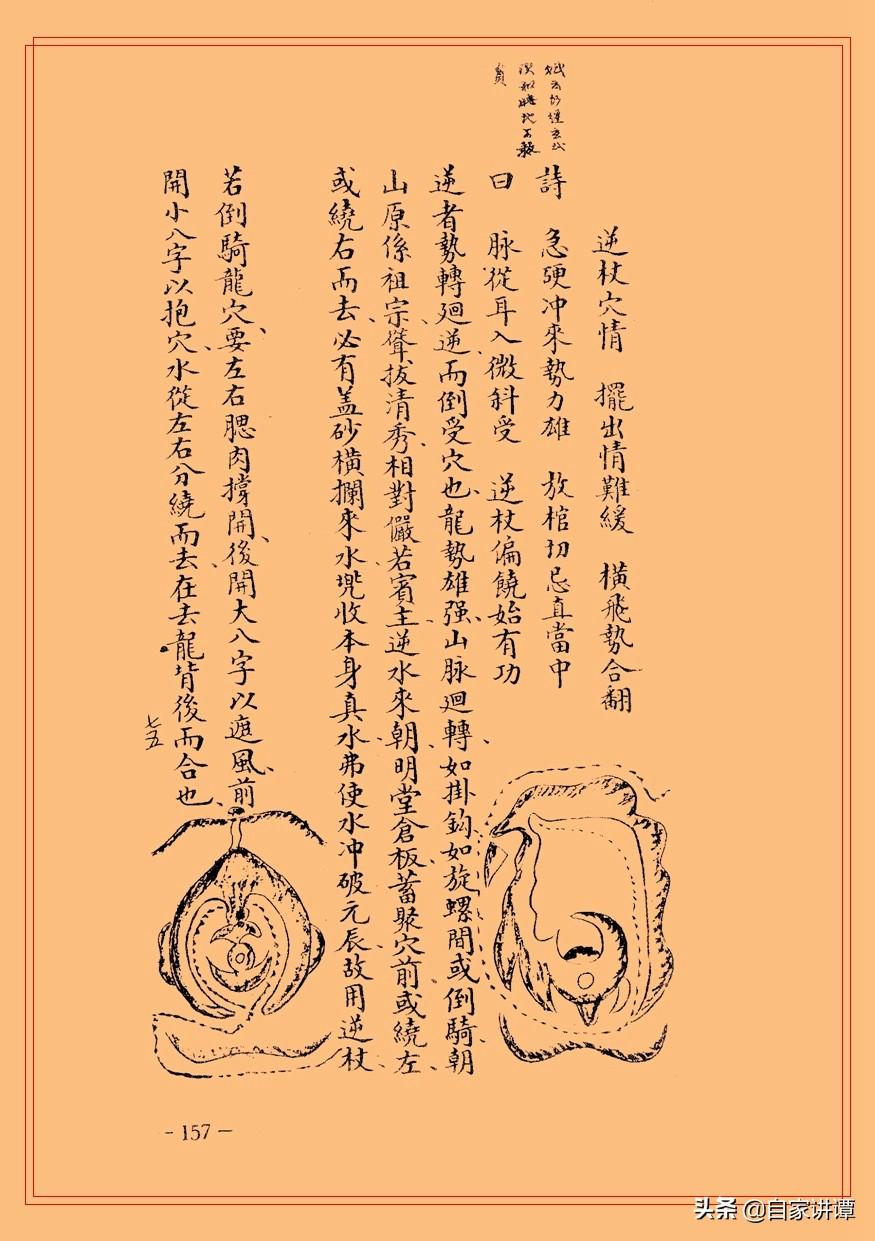 逆杖穴情　擺出情難緩　橫飛勢合翻
詩　急硬冲來勢力雄　放棺切忌直當中
曰　脉從耳入微斜受　逆杖偏饒始有功
逆者勢轉廻逆、而倒受穴也、龍勢雄强、山脉廻轉、如掛鈎、如旋螺、間或倒騎、朝
山原係祖宗、聳拔清秀、相對儼若賓主、逆水來朝、明堂倉板、蓄聚穴前、或繞左、
或繞右而去、必有盖砂橫攔來水、兠收本身真水、弗使水冲破元辰、故用逆杖
若倒騎龍穴、要左右腮肉撐開、後開大八字以遮風、前
開小八字以抱穴、水從左右分繞而去、在去龍背後而合也、
七五
- 157 -
头条 @自家讲谭